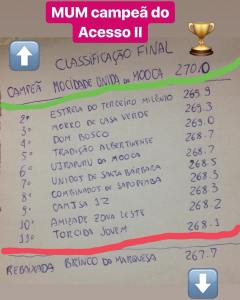 MUM campeã do
Acesso II
CLASSIFICAÇÃO FINAL
CAMPEÃ MOCIDADE UNIDA DA MOOCA 270.0
2º ESTRELA DO TERCEIRO MILÊNIO 269.9
3º MORRO DE CASA VERDE 269.3
4º DOM BOSCO 269.0
5º TRADIÇÃO ALBERTINENSE 268.7
6º UIRAPURU DA MOOCA 268.7
7º UNIDOS DE SANTA BÁRBARA 268.5
8º COMBINADOS DE SAPOPEMBA 268.3
9º CAMISA 12 268.3
10º AMIZADE ZONA LESTE 268.2
11º TORCIDA JOVEM 268.1
REBAIXADA BRINCO DA MARQUESA 267.7